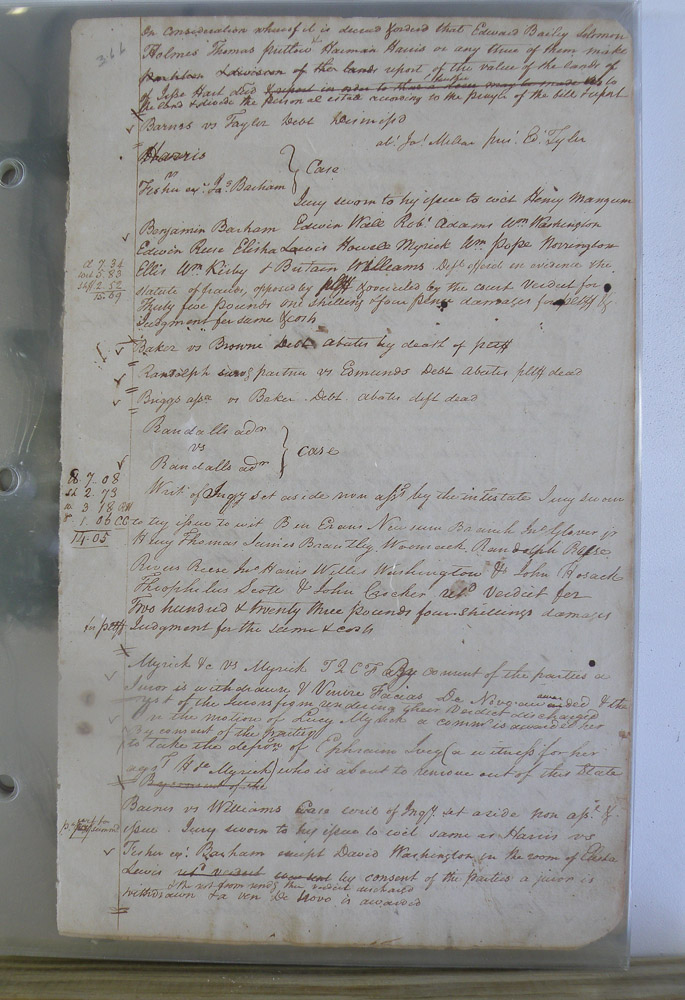 366
In consideration whereof it is decreed & ordered that Edward Baily Solomon
Holmes Thomas Pretlow & Harman Harris or any three of them make
partition & division of the lands report of the value of the lands of
of Jesse Hart decd & report in order to that a
the land & divide the personal estate according to the prayer of the bill & report
Barnes vs Taylor Debt Dismissd
Harris
vs
Fisher exr Jas Barham
Case
Jury sworn to try issue to wit Henry Mangum
Benjamin Barham Edwin Wall Robt Adams Wm Washington
Edwin Reese Elisha Lewis Howell Myrick Wm Pope Norrington
Ellis Wm Kirby & Britain Williams. Deft offerd in evidence the
statute of frauds, opposed by pltff & overruled by the court Verdict for
Thirty five pounds one shilling & four pence damages for pltff &
Judgment for same & costs
Cl 7.34
5.83
Shff 2.52
15.69
Baker vs Browne Debt abates by death of pltff
Randolph survg partner vs Edmunds Debt Abates pltff dead
Briggs assa vs Baker Debt. abates deft dead
Randalls adr
vs
Randalls adr
case
Cl. 7.08
Sh 2.73
3 18
1.06 CC
14.05
Writ of Inqy set aside non asst by the intestate Jury sworn
to try issue to wit Ben Evans Newsum Branch Jno Glover jr
Henry Thomas James Brantley, Womack Randolph Reese
Rivers Reese Jno Haris Willis Washington & John Hosack
Theophilus Scott & John Crocker retd Verdict for
Two hundred & twenty three pounds four shillings damages
for pltff Judgment for the same & costs
Myrick &c vs Myrick T Q C F By consent of the parties a
Juror is withdrawn & Venire Facias De Novo awarded & the
rest of the Jurors from rendering their Verdict discharged
On the motion of Lucy Myrick a commn is awarded her
By consent of the parties
to take the depon of Ephraim Ivey (a witness for her
agst H Myrick) who is about to remove out of this State
By consent of the
Barnes vs Williams Case writ of Inqy set aside non asst &
issue. Jury sworn to try issue to wit same as Harris vs
Fisher exr Barham except David Washington in the room of Elisha
Lewis retd verdict by consent of the parties a juror is
& the rest from rendg their verdict discharged
withdrawn & a ven De Novo is awarded